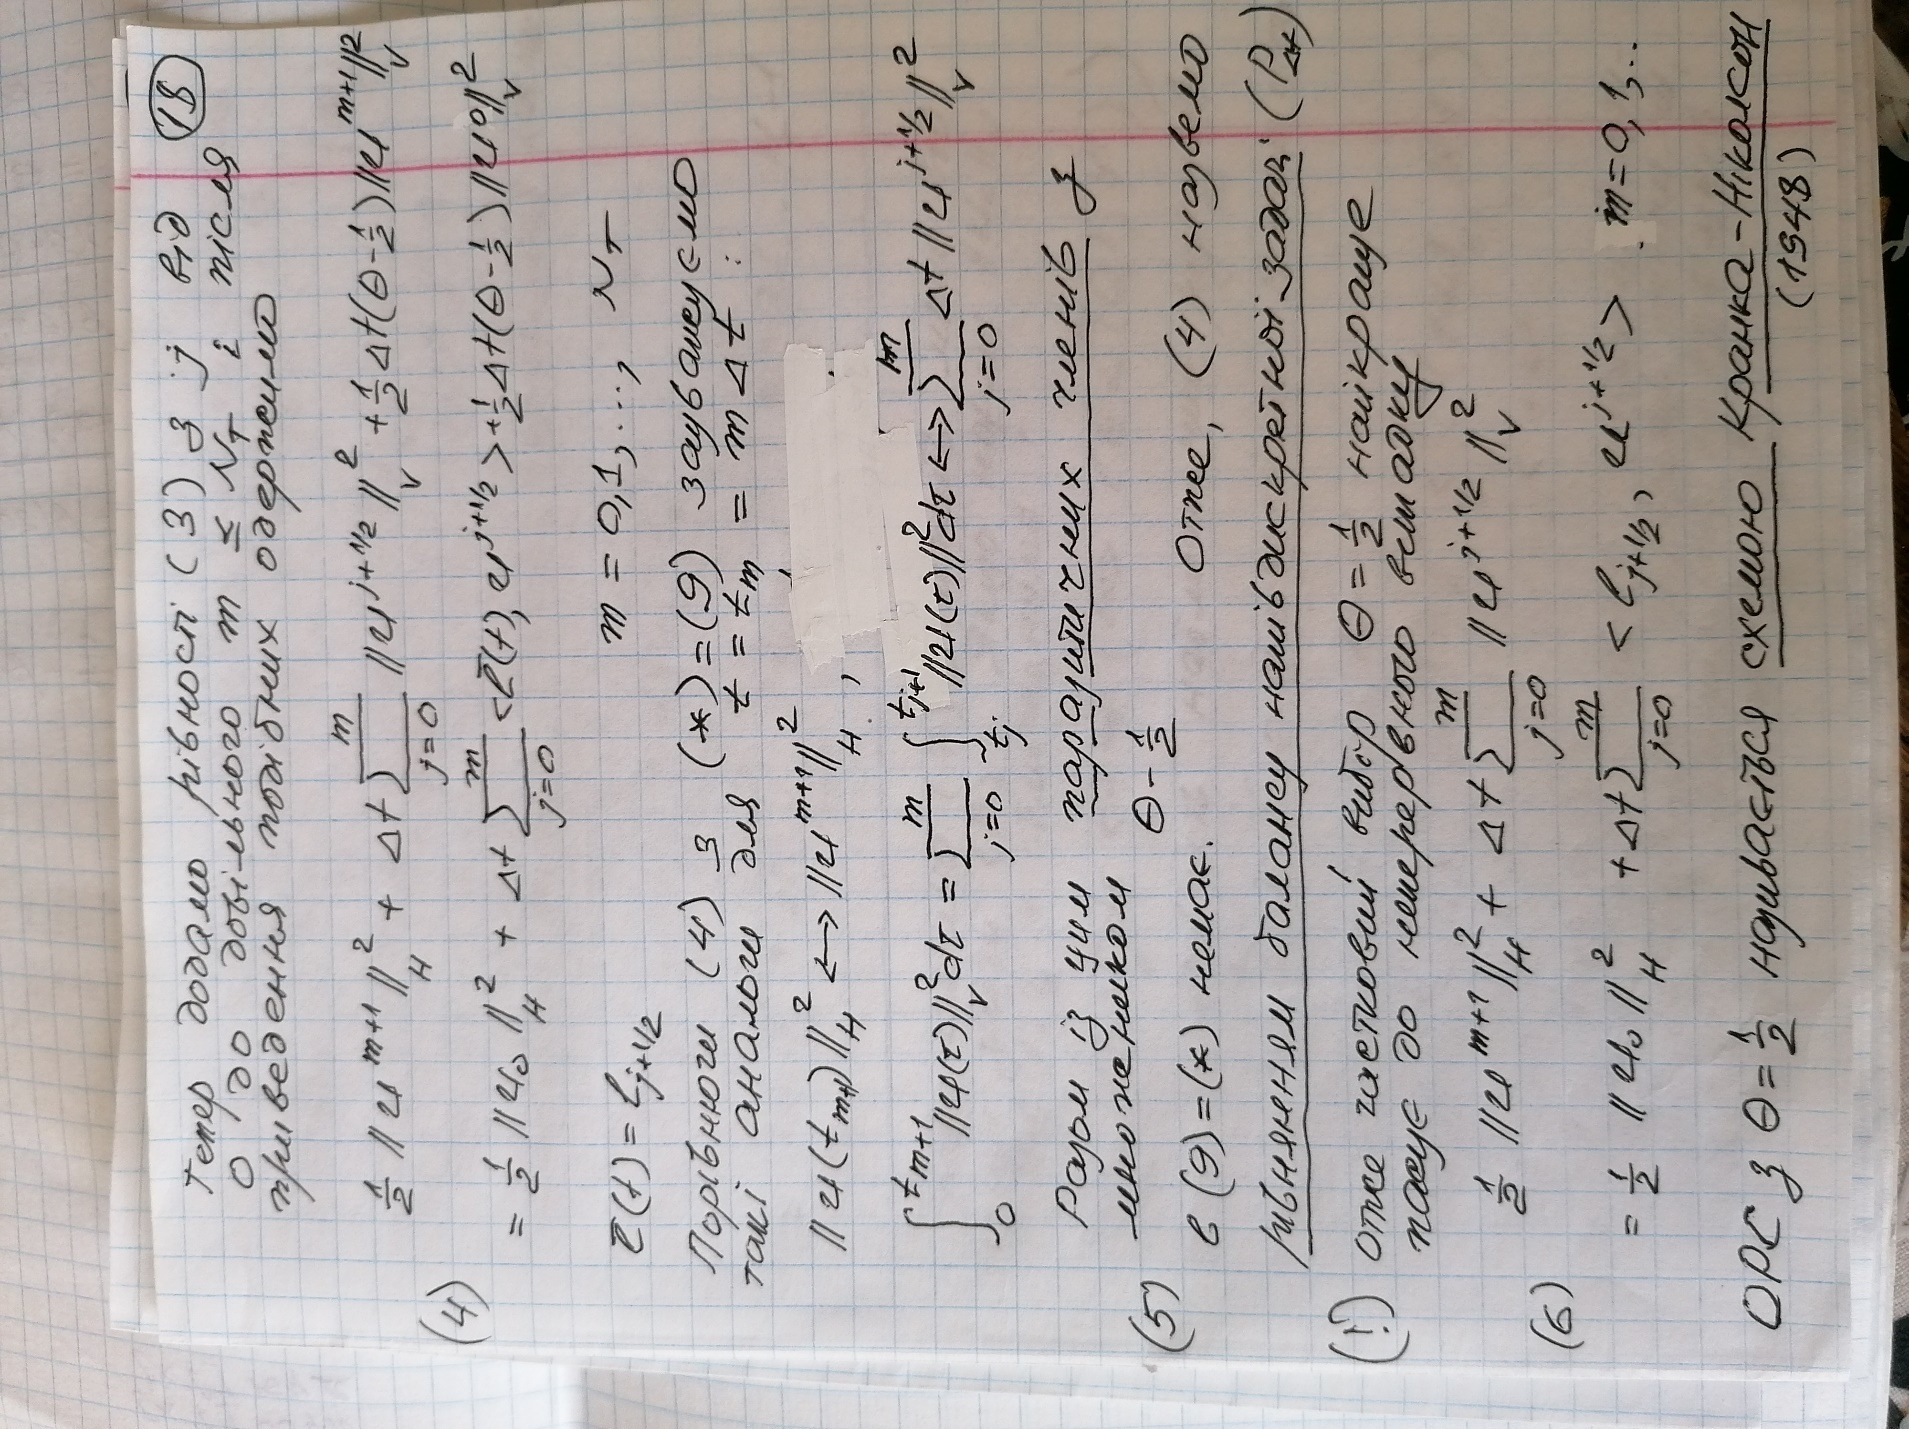 18
Тепер додамо рівності (3) з j від
0 до довільного m ≤ N_T і після
приведення подібних одержимо
(4) ½ ||u^{m+1}||²_H + Δt Σ_{j=0}^{m} ||u^{j+1/2}||²_V + ½Δt(θ-½)||u^{m+1}||²_V
= ½ ||u₀||²_H + Δt Σ_{j=0}^{m} <ℓ̄(t), u^{j+1/2}> + ½Δt(θ-½)||u⁰||²_V
ℓ̄(t) = ℓ_{j+1/2} m = 0,1,..., N_T
Порівнюючи (4) з (*)=(9) зауважуємо
такі аналоги для t = t_m = mΔt :
||u(t_{m+1})||²_H ↔ ||u^{m+1}||²_H ,
∫_0^{t_{m+1}} ||u(τ)||²_V dτ = Σ_{j=0}^{m} ∫_{t_j}^{t_{j+1}} ||u(τ)||² dτ ↔ Σ_{j=0}^{m} Δt ||u^{j+1/2}||²_V
Разом із цим паразитичних членів з
множенником θ - ½
(5) в (9)=(*) немає. Отже, (4) назвемо
рівнянням балансу напівдискретної задачі (P_Δt)
(!) Отже частковий вибір θ = ½ найкраще
пасує до неперервного випадку
(6) ½ ||u^{m+1}||²_H + Δt Σ_{j=0}^{m} ||u^{j+1/2}||²_V
= ½ ||u₀||²_H + Δt Σ_{j=0}^{m} <ℓ_{j+1/2}, u^{j+1/2}> . m=0,1,..
ОРС з θ = ½ називається схемою Кранка-Ніколсон
(1948)